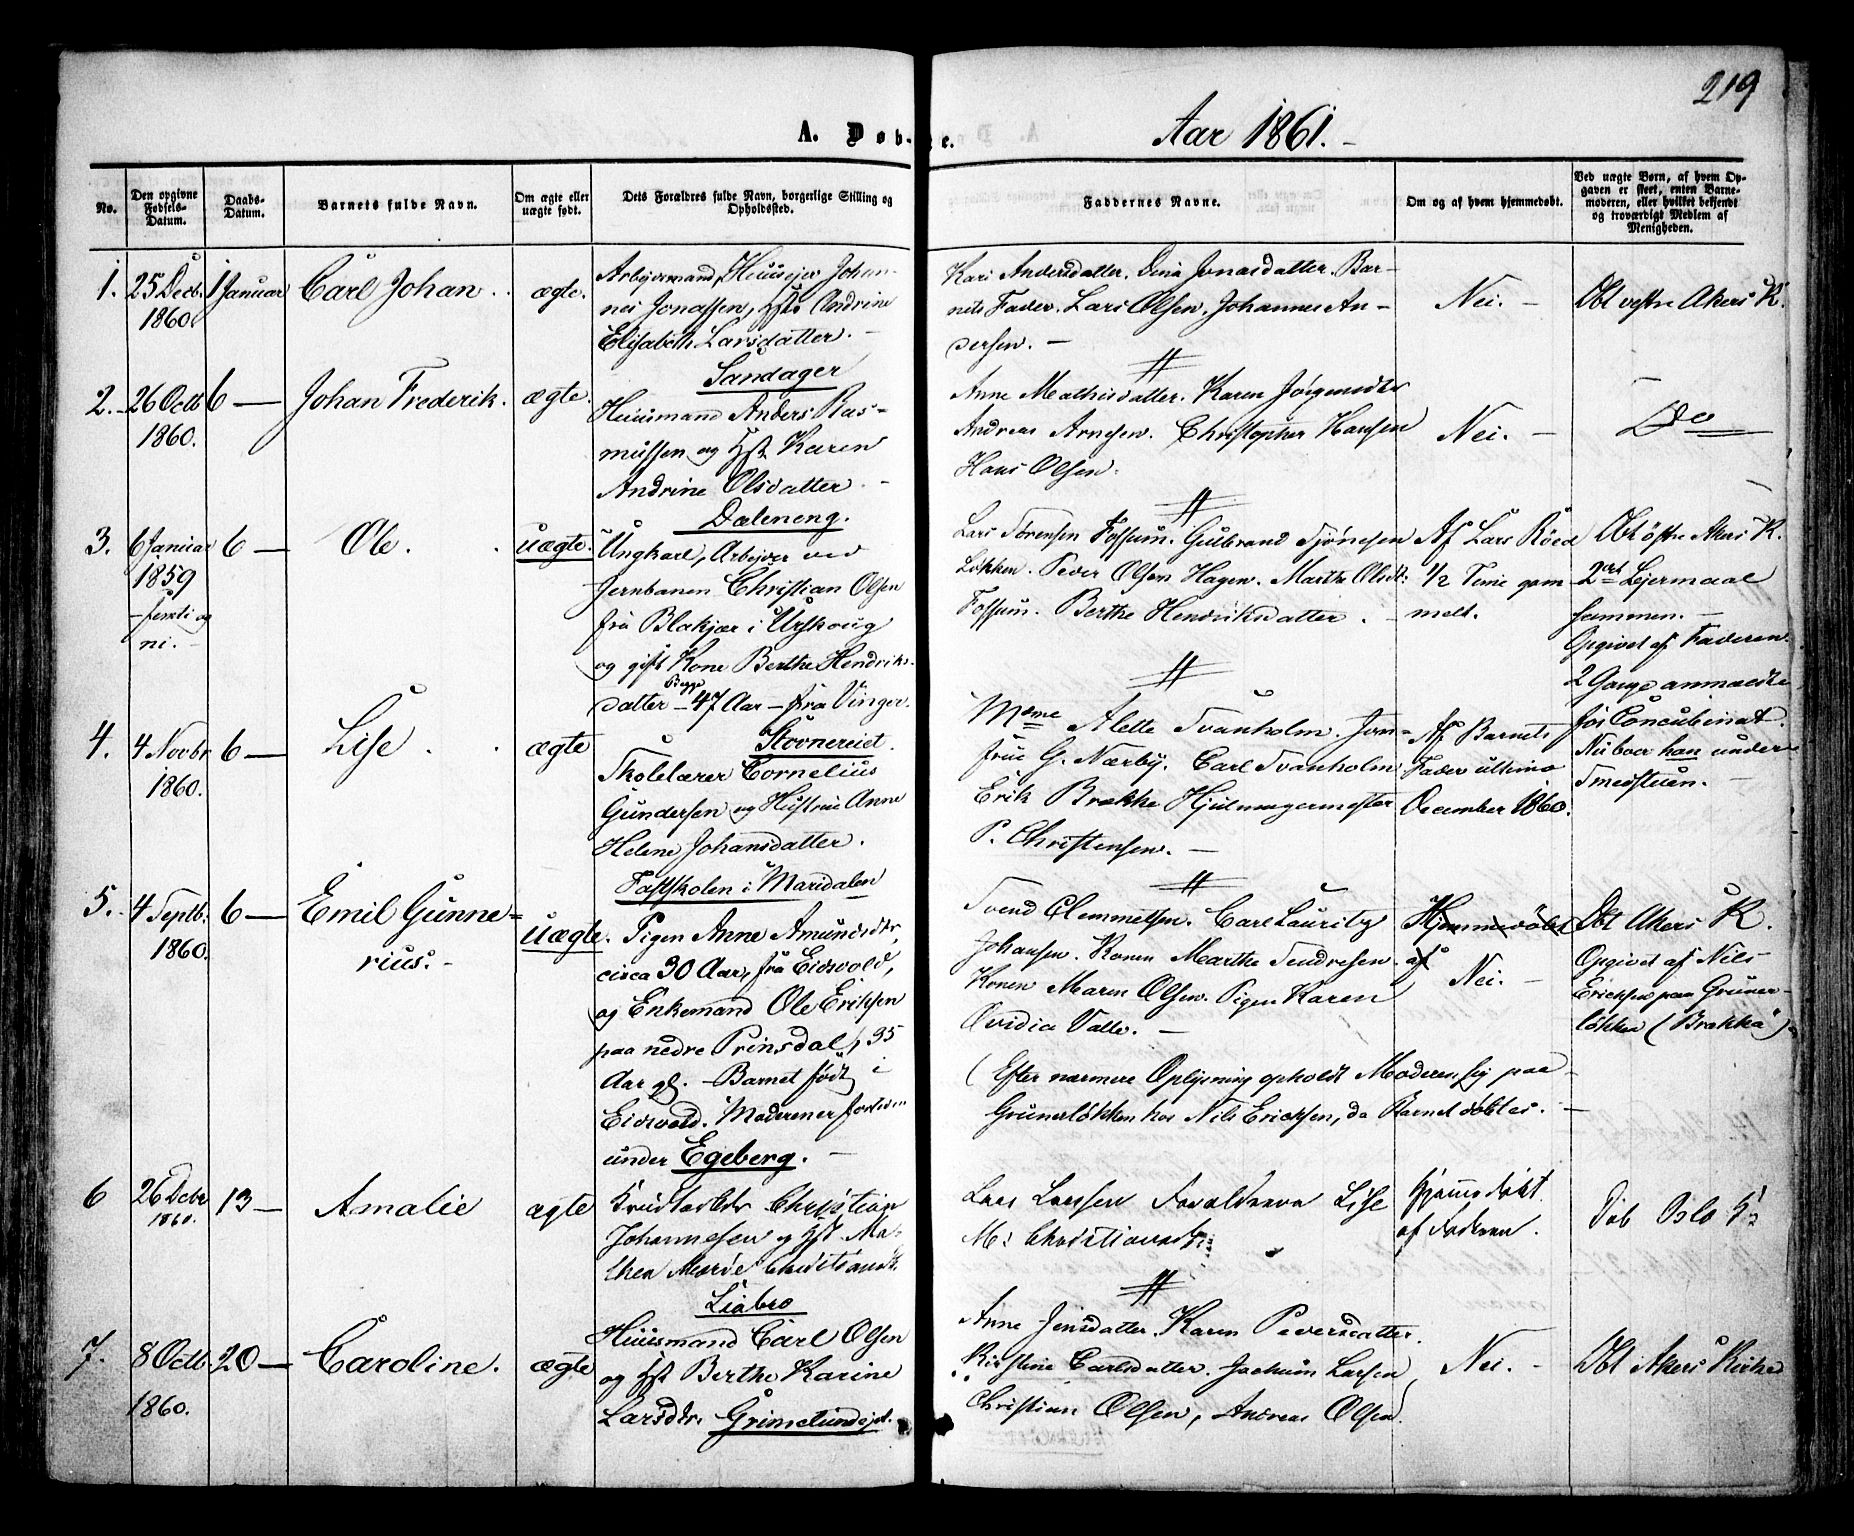 219
A. Døb-te.
Aar 1861. -
No.
Den opgivne Fødsels-Datum.
Daabs-Datum.
Barnets fulde Navn.
Om ægte eller uægte født.
Dets Forældres fulde Navn, borgerlige Stilling og Opholdssted.
Faddernes Navne.
Om og af hvem hjemmedøbt.
Ved uægte Børn, af hvem Opgaven er skeet, enten Barnemoderen, eller hvilket bekjendt og troværdigt Medlem af Menigheden.
1.
25 Decb.
1860.
1 Januar
Carl Johan.
ægte.
Arbeidsmand, Huusejer Johan-
nes Jonassen, Hst. Andrine
Elisabeth Larsdatter. -
Sandager
Kari Andersdatter. Dina Jonasdatter. Bar-
nets Fader. Lars Olsen, Johannes An-
dersen. -
Nei. -
Dbt vestre Akers K.
2.
26 Octb
1860.
6 —
Johan Frederik.
ægte.
Huusmand Anders Ras-
mussen og Hst. Karen
Andrine Olsdatter. -
Dæleneng.
Anne Mathisdatter. Karen Jörgensdtr
Andreas Arnesen. Christopher Hansen
Hans Olsen.
Nei. -
Do
3.
6 Januar
1859
- femti og
ni. -
6 —
Ole.
uægte.
Ungkarl, Arbejder ved
Jernbanen Christian Olsen
fra Blakjær i Urskoug
og gift Kone Berthe Hendriks-
datter - Begge 47 Aar - fra Vinger.
Stovnereiet.
Lars Sörensen Fossum. Gulbrand
Løkken. Peder Olsen Hagen. Marthe Olsdt:
Fossum. Berthe Hendriksdatter. -
Af Lars Röed
1/2 Time gam
melt.
Dbt östre Akers K.
2det Lejermaal
sammen. -
Opgivet af Faderen.
2 Gange anmeldte
for Concubinat.
Nu boer han under
Smedstuen. -
4.
4 Novbr
1860.
6 —
Lise.
ægte
Skolelærer Cornelius
Gundersen og Hustrue Anne
Helene Johansdatter.
Fastskolen i Maridalen
Mme Alette Svanholm. Jom-
frue G. Nærby. Carl Svanholm
Erik Brække Hjulmagermester
P. Christensen. -
Af Barnets
Fader ultimo
December 1860.
5.
4 Septb.
1860.
6 —
Emil Gunne-
rius. -
uægte.
Pigen Anne Amundsdtr,
circa 30 Aar, fra Eidsvold,
og Enkemand Ole Eriksen
paa nedre Prinsdal, 35
Aar gl. - Barnet født i
Eidsvold. Moderen er
under Egeberg. -
Svend Clemmetsen. Carl Lauritz
Johansen. Konen Marthe Sendresen.
Konen Maren Olsen. Pigen Karen
Ovidia Valle. -
(Efter nærmere Oplysning opholdt Moderen sig paa
Grünerløkken hos Nils Ericksen, da Barnet döbtes. -
Hjemmedøbt
af
Nei. -
Dbt Akers K.
Opgivet af Nils
Ericksen paa Grüner-
løkken (Brakka)
6
26 Decbr
1860.
13 —
Amalie
ægte
Christian
Johannesen og Hst. Ma-
thea Marie
Liabro
Lars Larssen Lise
M: Christiansdtr
Hjemmedøbt
af Faderen.
Døb Oslo K.
7.
8 Octb
1860.
20 —
Caroline.
ægte
Huusmand Carl Olsen
og Hst Berthe Karine
Larsdtr. Grimelundejet.
Anne Jensdatter. Karen Pedersdatter.
Kirstine Carlsdatter. Jochum Larsen
Christian Olsen, Andreas Olsen.
Nei. -
Dbt Akers Kirke